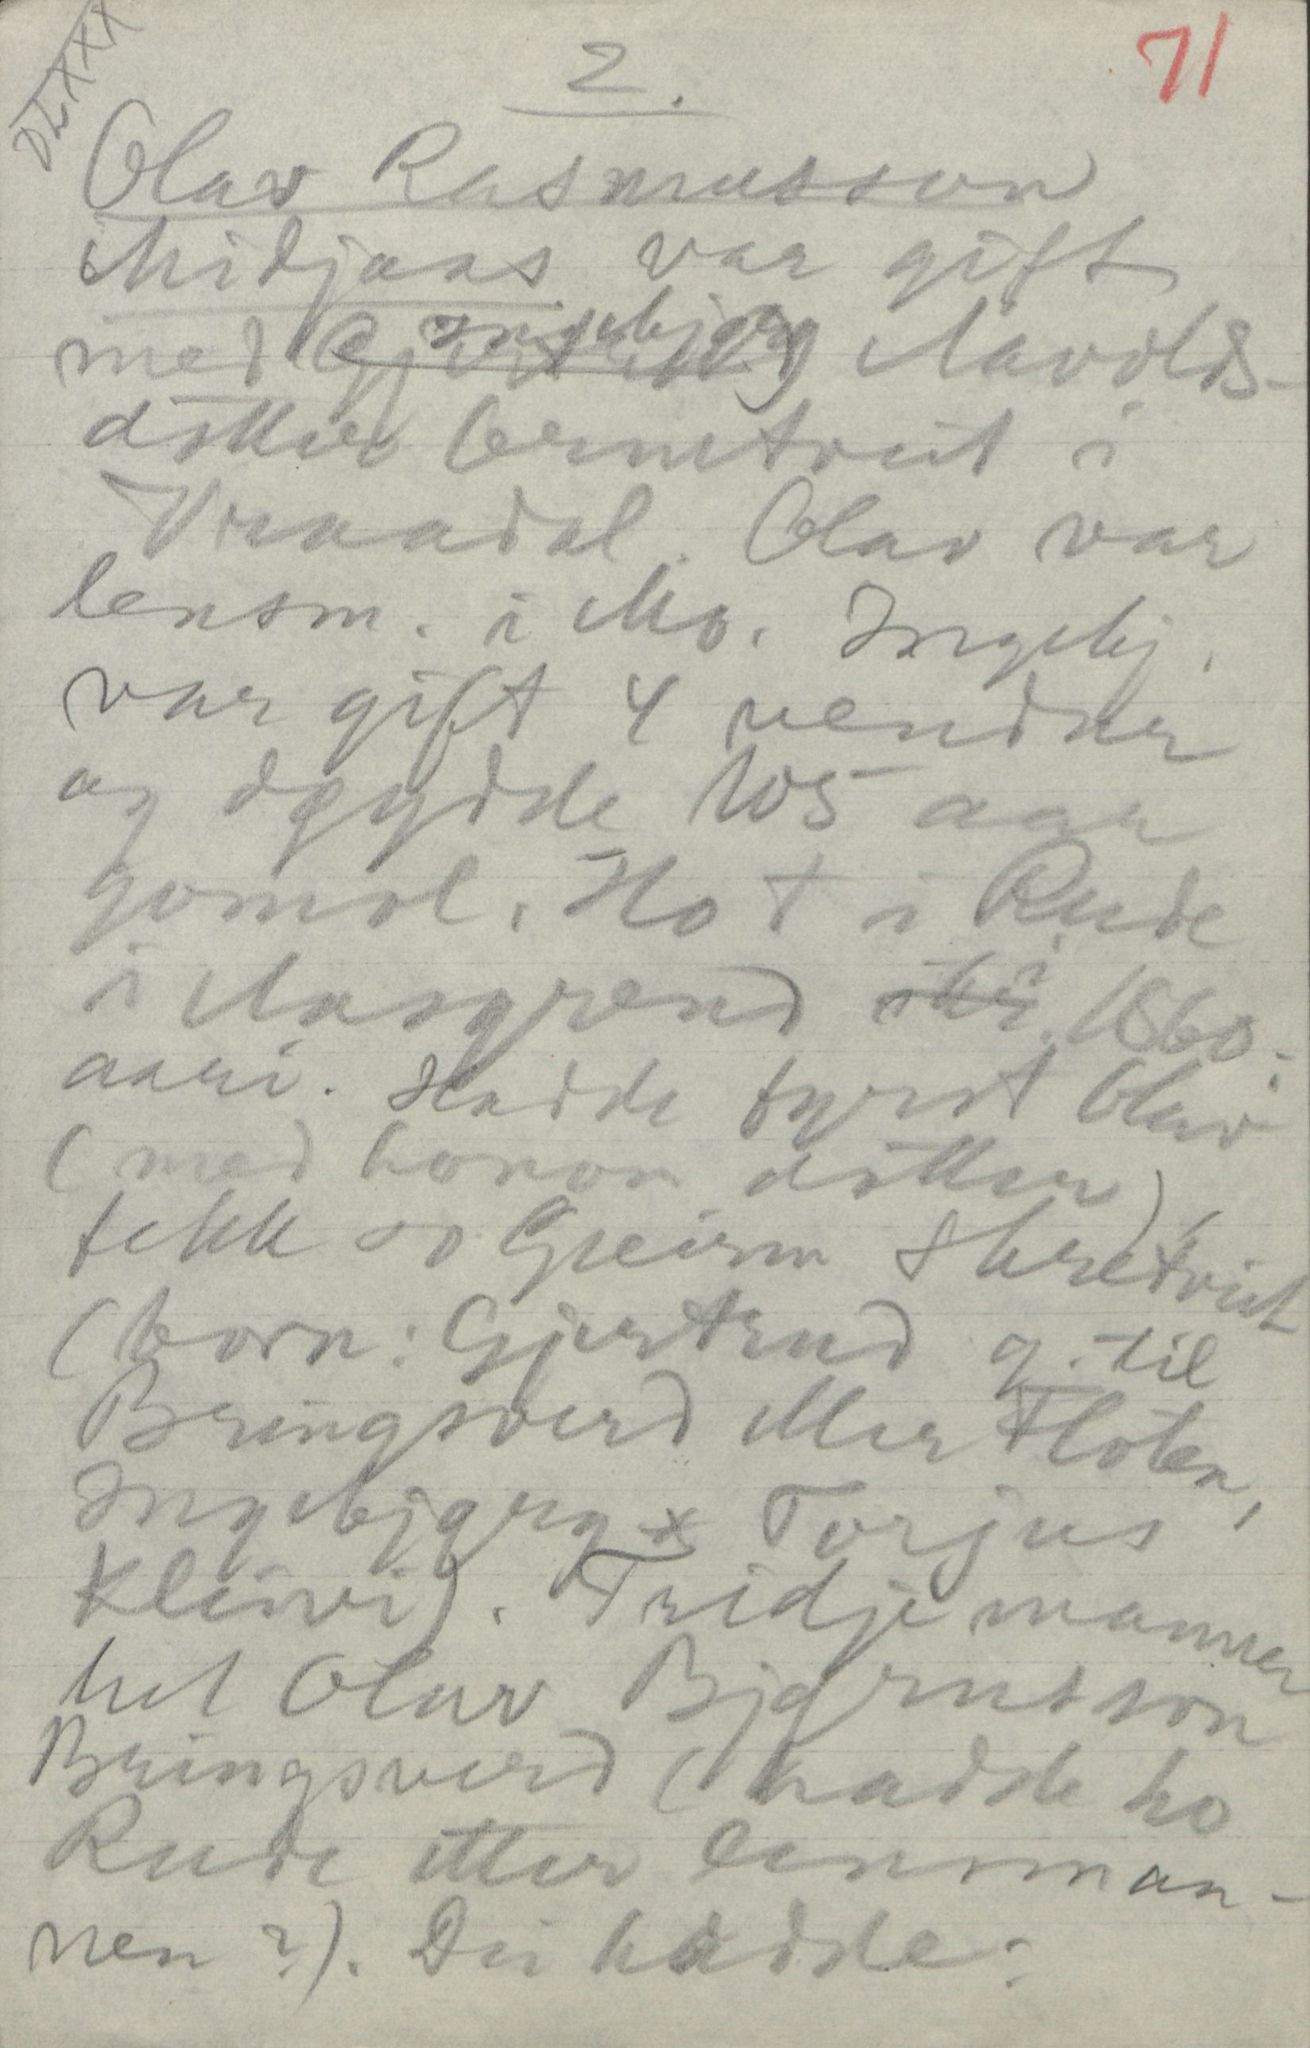 DLXXX
2.
71
Olav Rasmusson
Midjaas var gift
med Ingebjørg Navolds-
dotter Ormtveit i
Vraadal. Olav var
lensm. i Mo. Ingebj.
var gift 4 vendur
og døydde 105 aar
gomol. Ho † i Rude
i Aasgrend i 1860-
aari. Hadde fyrst Olav
(med honom dotter),
fekk so Greivm Skretveit
(born: Gjertrud g. til
Bringsverd eller Floten,
Ingebjørg x Torjus
Kleivi). Tridje mannen
het Olav Bjørnsson
Bringsverd (hadde ho
Rude etter lensman-
nen?). Dei hadde: